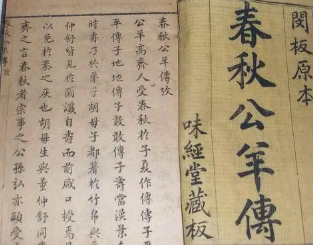 閔板原本
春秋公羊傳
味經堂藏板
春秋公羊傳攷
公羊高齊人受春秋於子夏作傳傳子
平傳子地地傳子敢敢傳子壽當漢景
時壽乃與弟子胡母子都著於竹帛與
仲舒皆見於圖讖自壽而前咸口授焉
以免於秦之灰也胡母生與董仲舒同
齊之言春秋者宗事之公孫弘亦頗受